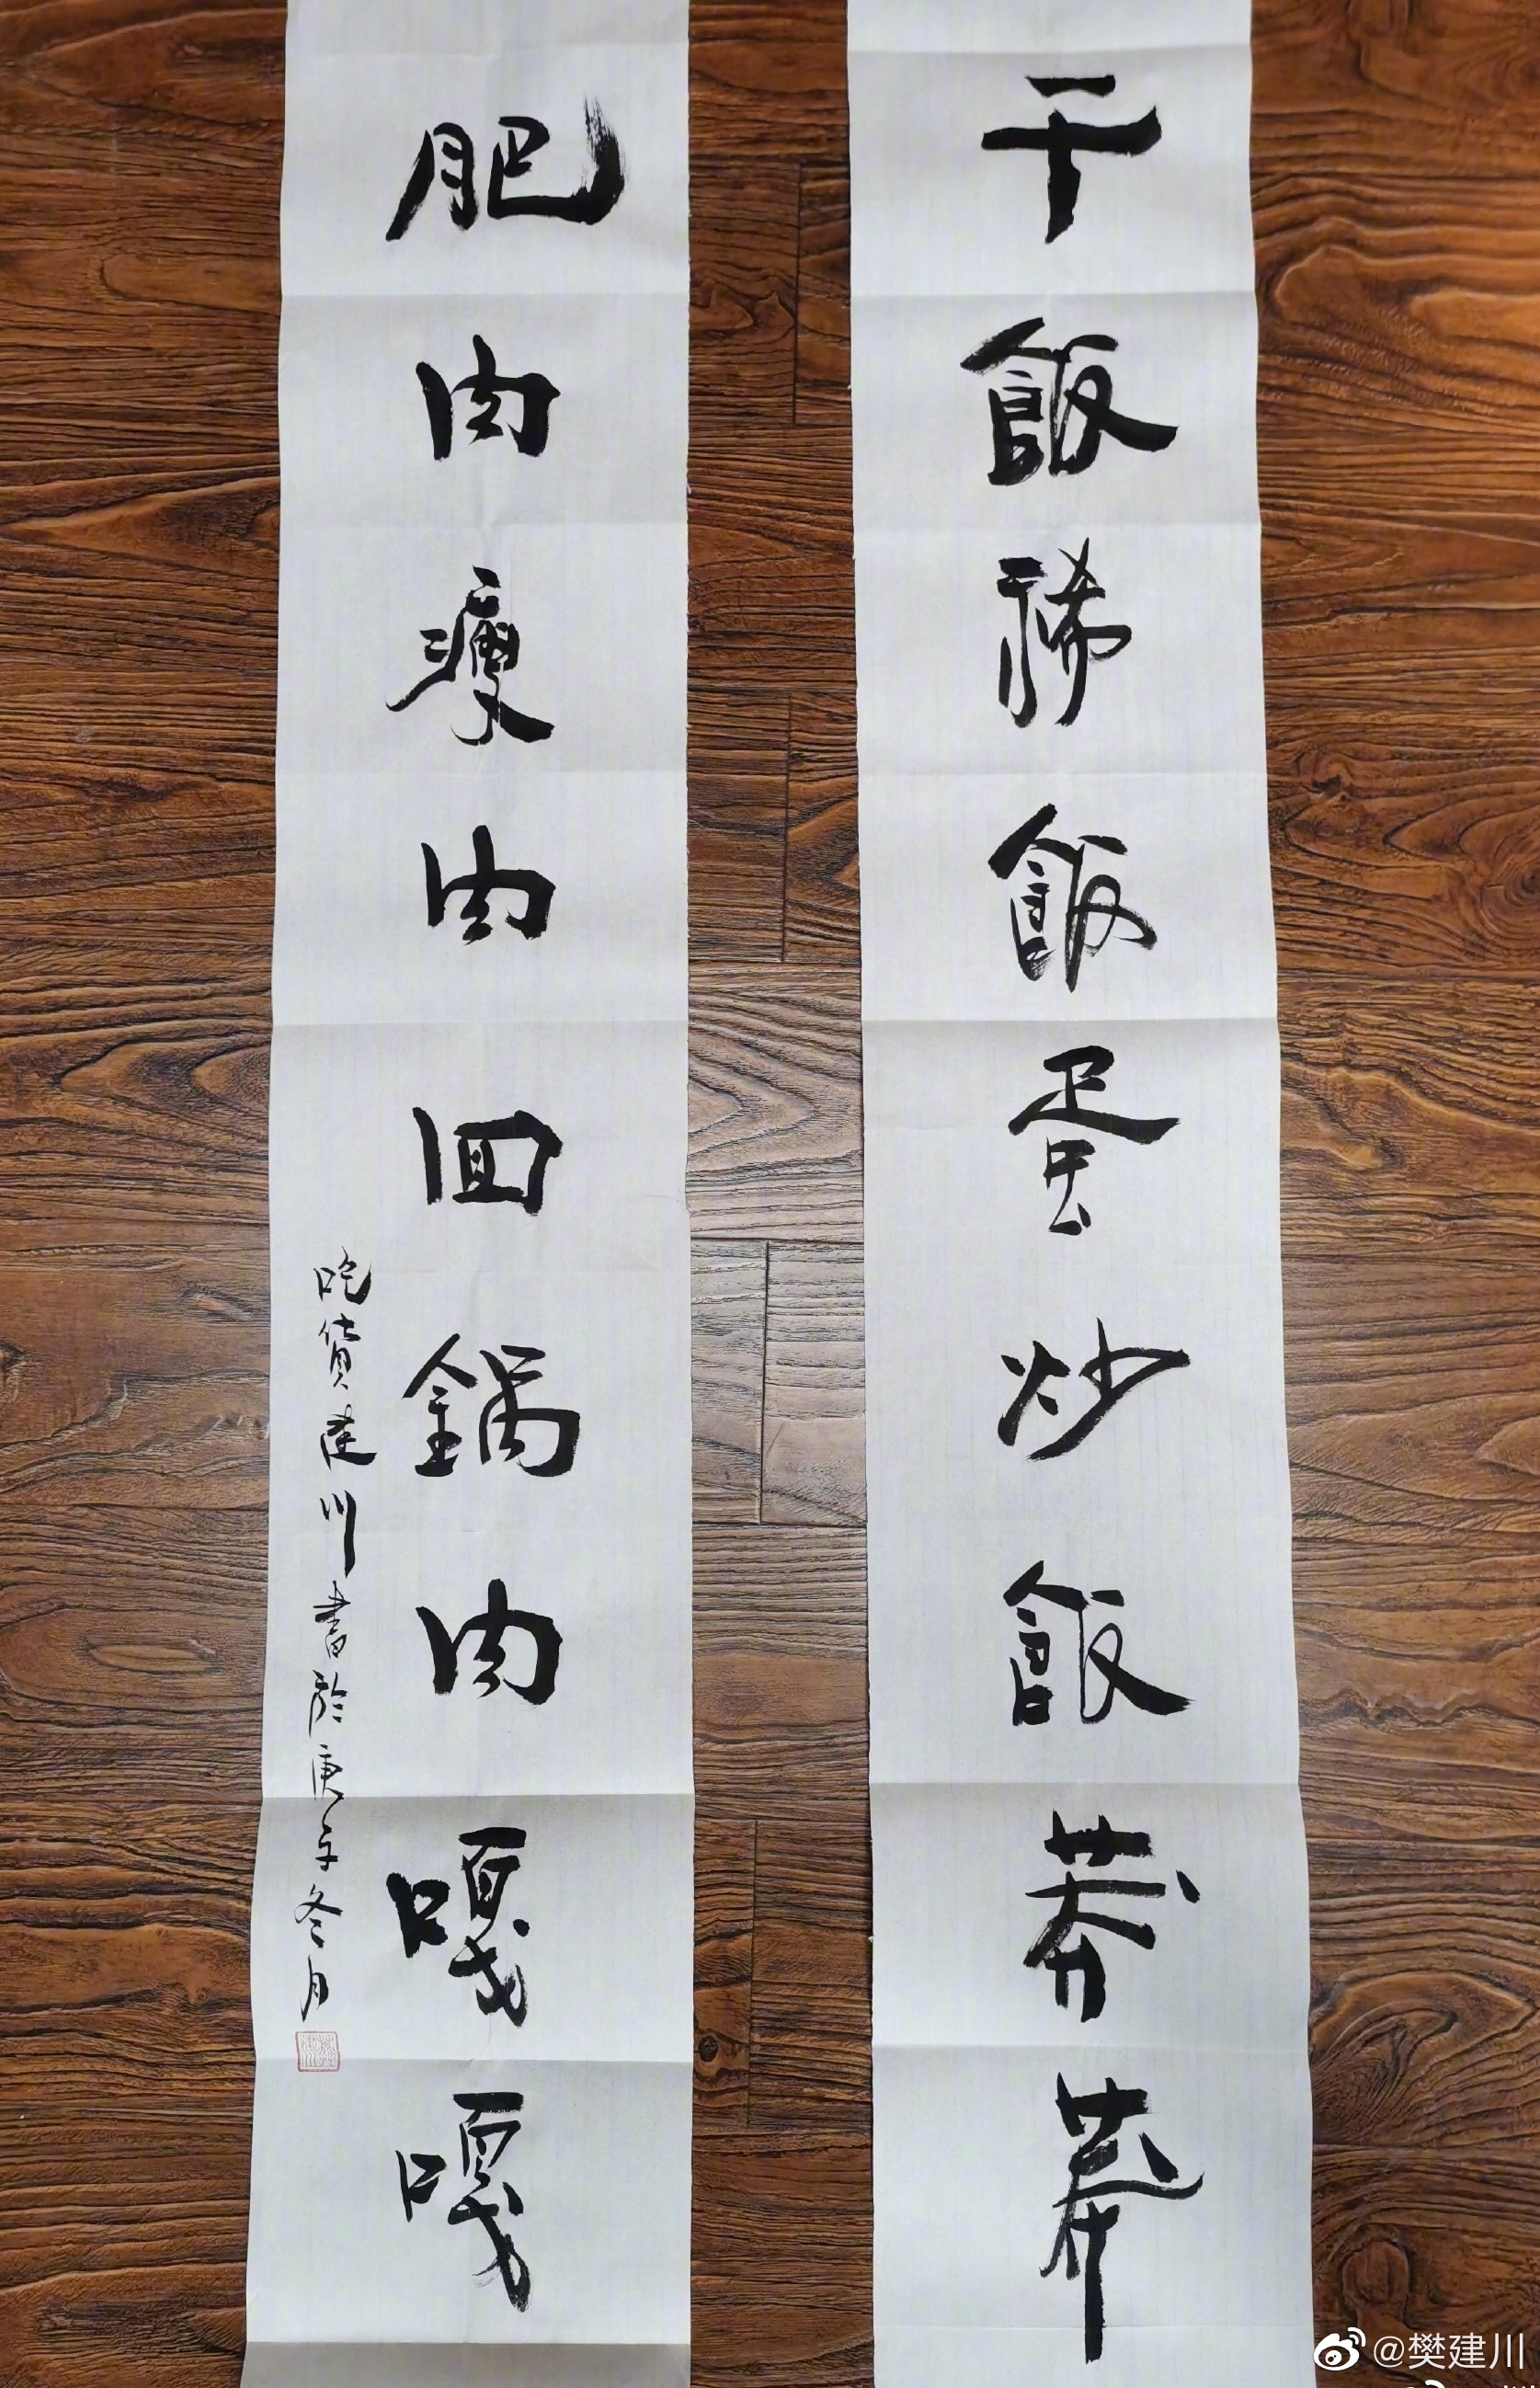 干飯稀飯蛋炒飯莽莽
肥肉瘦肉回鍋肉嘎嘎
吃貨建川書於庚子冬月
@樊建川